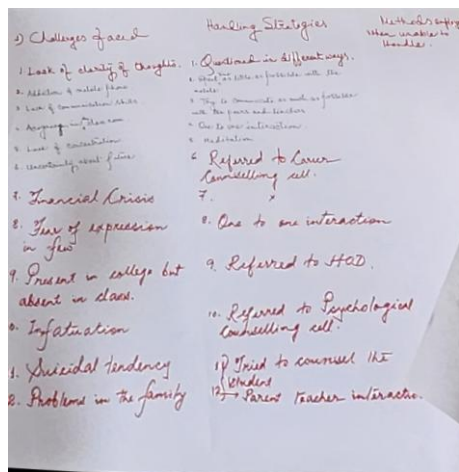 1) Challenges faced
Handling Strategies
Methods employ
When unable to
Handle.
1. Lack of clarity of thoughts.
2. Addiction of mobile phone
3. Lack of communication skills
4. in classroom
5. Lack of concentration
6. Uncertainty about future
7. Financial Crisis
8. Fear of expression
in few
9. Present in college but
absent in class.
0. Infatuation
1. Suicidal tendency
2. Problems in the family
1. Questioned in different ways.
2. Spend time as little as possible with the
mobile
3. Try to communicate as much as possible
with the peers and teachers
4. One to one interaction
5. Meditation
6. Referred to Career
Counselling cell.
7. x
8. One to one interaction
9. Referred to HOD.
10. Referred to Psychological
Counselling cell.
11) Tried to counsel the
student
12) → Parent teacher interaction.